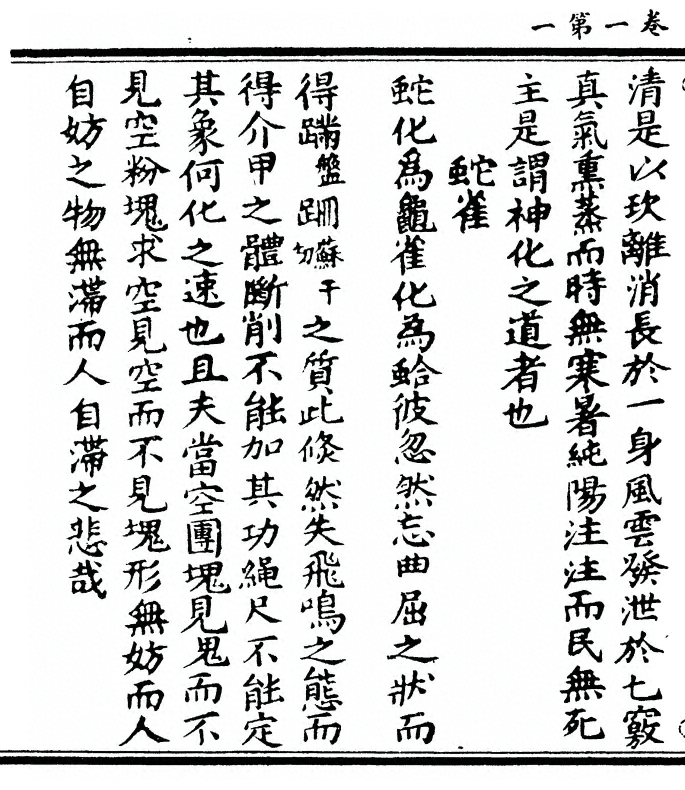 卷一第一
清是以坎離消長於一身風雲發泄於七竅
真氣熏蒸而時無寒暑純陽注注而民無死
主是謂神化之道者也
蛇雀
蛇化為龜雀化為蛤彼忽然忘曲屈之狀而
得蹣盤跚蘇干切之質此倏然失飛鳴之態而
得介甲之體斷削不能加其功繩尺不能定
其象何化之速也且夫當空團塊見鬼而不
見空粉塊求空見空而不見塊形無妨而人
自妨之物無滯而人自滯之悲哉